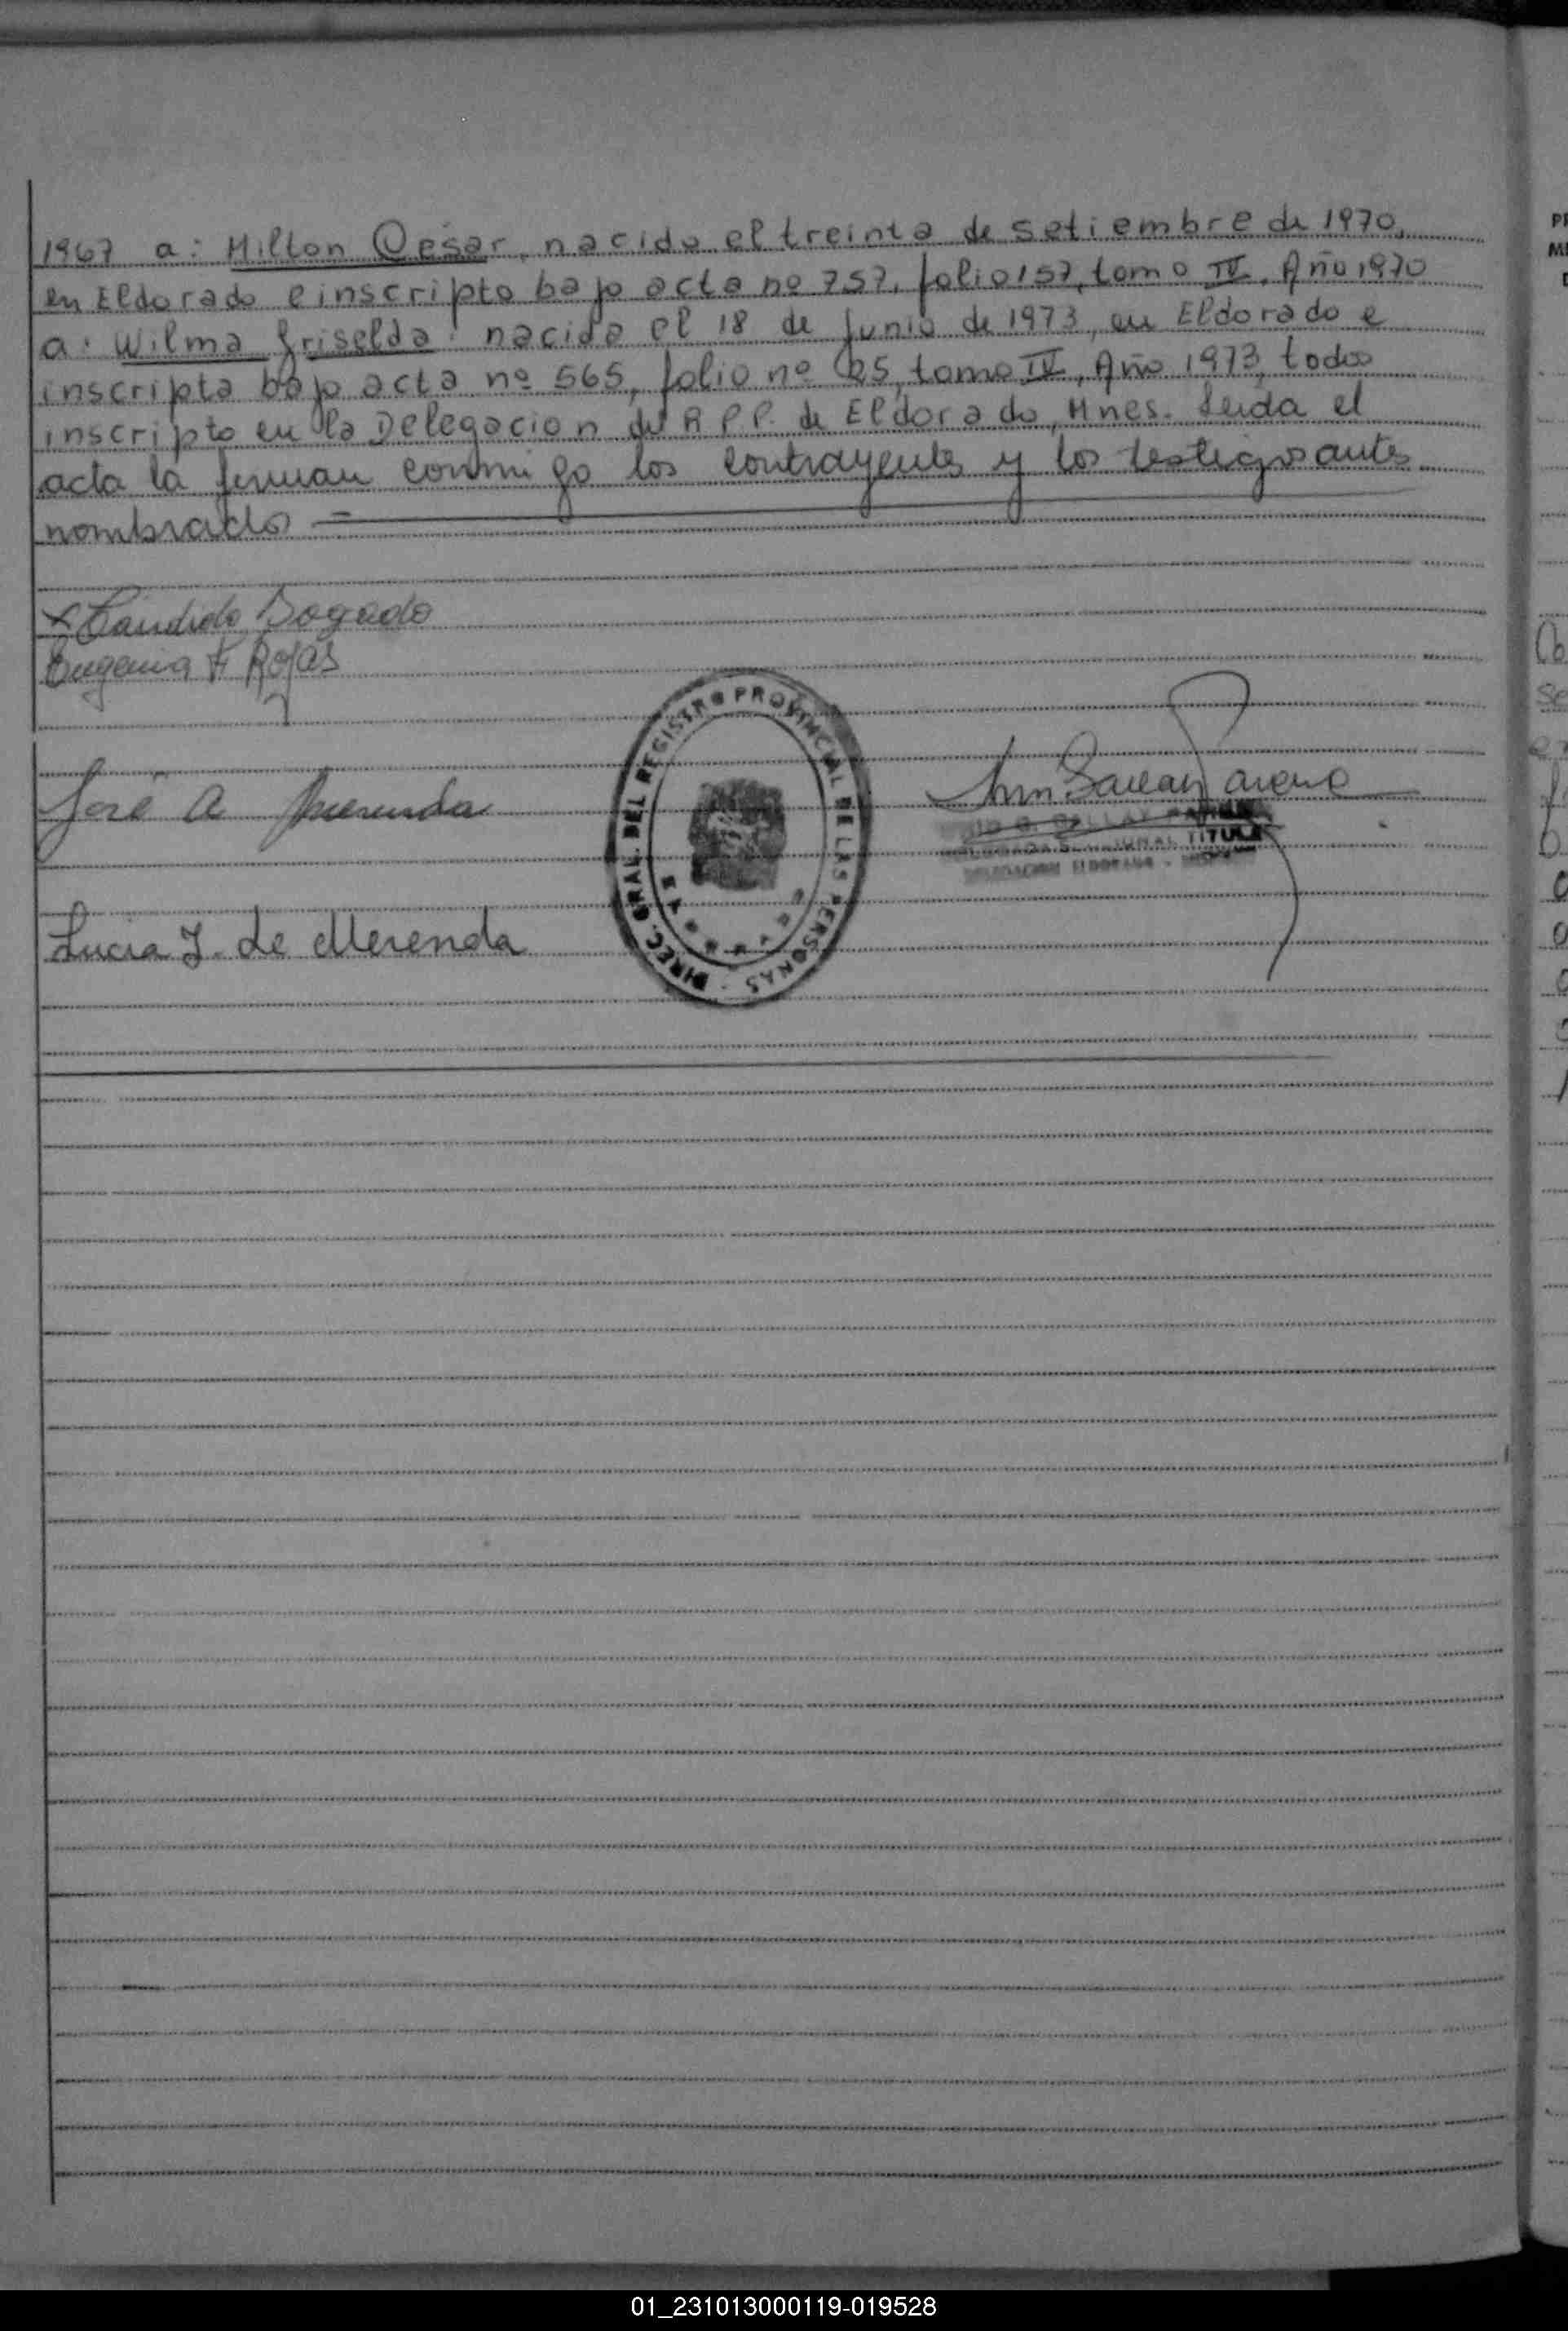 1967 a: Milton Cesar, nacido el treinta de setiembre de 1970,
en Eldorado e inscripto bajo acta nº 757, folio 157, tomo IV, Año 1970
a: Wilma Griselda: nacida el 18 de Junio de 1973, en Eldorado e
inscripta bajo acta nº 565, folio nº 25, tomo IV, Año 1973, todos
inscripto en la Delegacion del R P P. de Eldorado, Mnes. Leida el
acta la firman conmigo los contrayentes y los testigos antes
nombrado =
x Candido Bogado
Eugenia F Rojas
Jose A Merenda
Lucia J. de Merenda
DIREC. GRAL. DEL REGISTRO PROVINCIAL DE LAS PERSONAS
TITULAR
DELEGACION ELDORADO
01_231013000119-019528